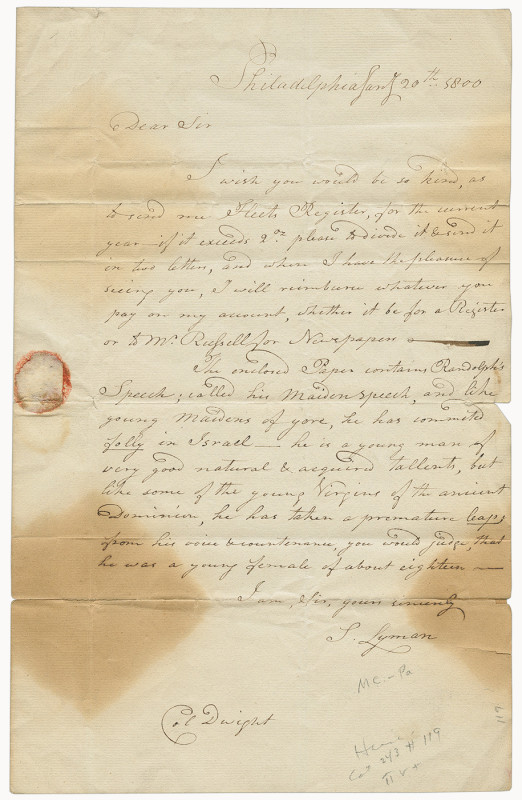 Philadelphia Jany 20th 1800
Dear Sir
I wish you would be so kind, as
to send me Fleets Register, for the current
year—if it exceeds 2oz please to divide it & send it
in two letters, and when I have the pleasure of
seeing you, I will reimburse whatever you
pay on my account, whether it be for a Register
or to Mr Russell for Newspapers
The enclosed Paper contains Randolph's
Speech; called his Maiden speech, and like
young Maidens of yore, he has commited
folly in Israel— he is a young man of
very good natural & acquired tallents, but
like some of the young Virgins of the ancient
Dominion, he has taken a premature leap;
from his voice & countenance, you would judge, that
he was a young female of about eighteen—
I am, Sir, yours sincerely
S. Lyman
M.C.-Pa
Col Dwight
119
Cat 243 # 119